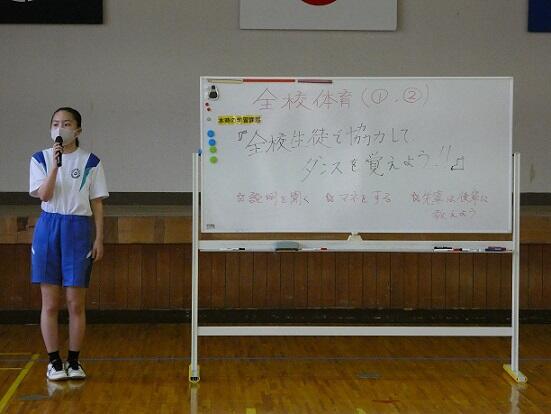 全校体育(①、②)
本時の学習課題
『全校生徒で協力して
ダンスを覚えよう!!』
☆説明を聞く ☆マネをする ☆先輩は後輩に
教えよう